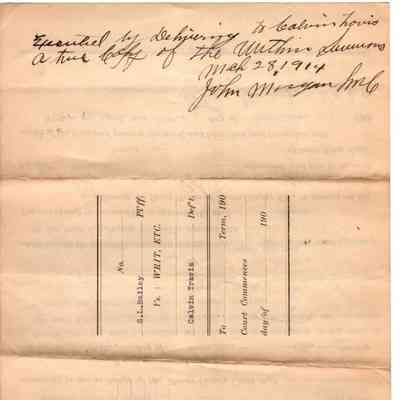 Executed by Delivering to Calvin Travis
a true Copy of the Within Summons
Mch 28, 1914
John Morgan
No. Pl'ff,
S.L.Bailey
Vs. : WRIT, ETC.
Calvin Travis Def't.
To Term, 190
Court Commences
day of 190